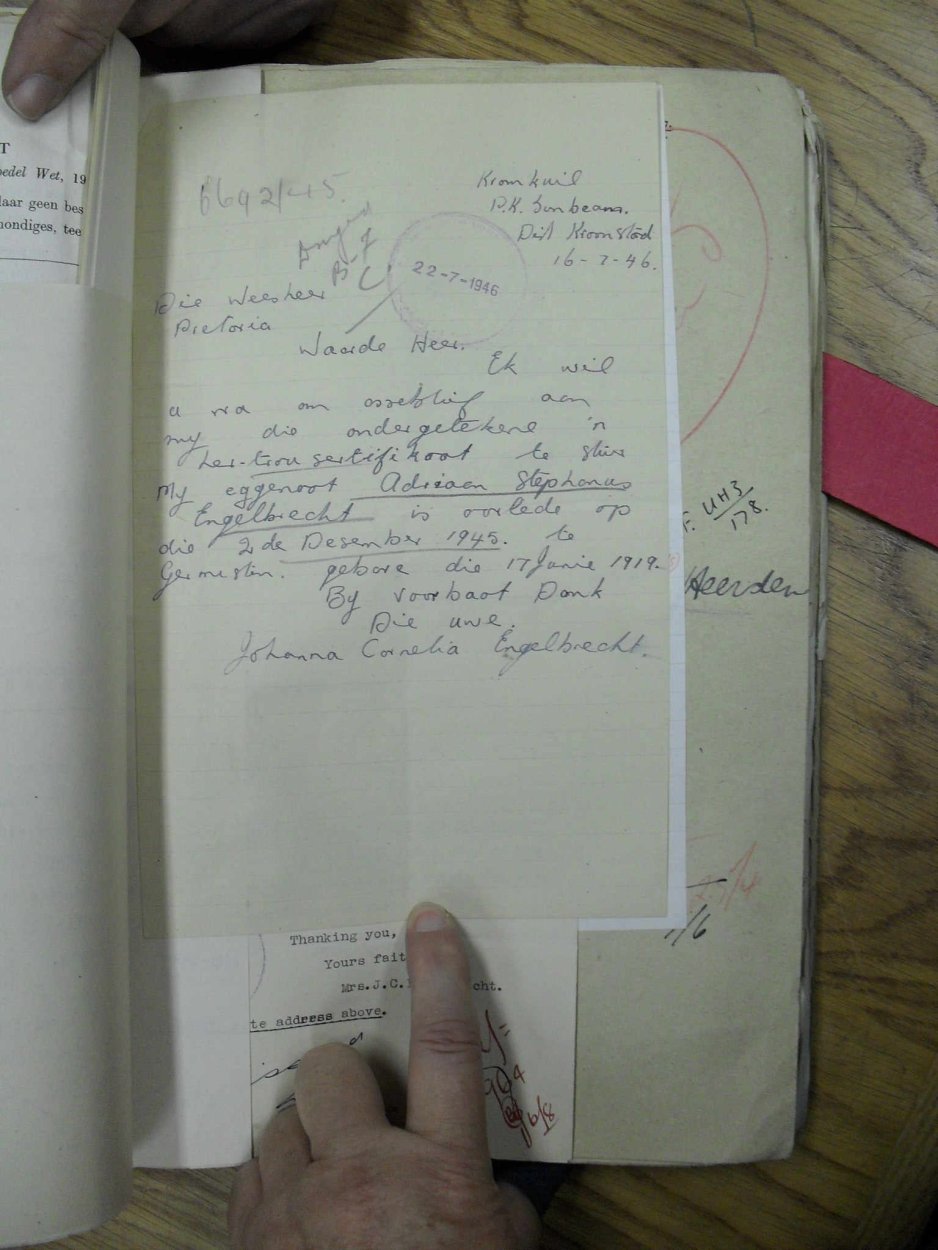 T
oedel Wet, 19
daar geen bes
nondiges, tee
6692/45.
Kromkuil
P.K. Sunbeams.
Dist Kroonstad
16-7-46.
22-7-1946
Die Weesheer
Pretoria
Waarde Heer.
Ek wil
u vra om asseblief aan
my die ondergetekene 'n
her-trou sertifikaat te stuur
My eggenoot Adriaan Stephanus
Engelbrecht is oorlede op
die 2de Desember 1945. te
Germiston. gebore die 17 Junie 1919.
By voorbaat Dank
Die uwe.
Johanna Cornelia Engelbrecht.
UH3
178.
Heerden
1/6
Thanking you,
Yours fait
Mrs.J.C. cht.
te address above.
6/8